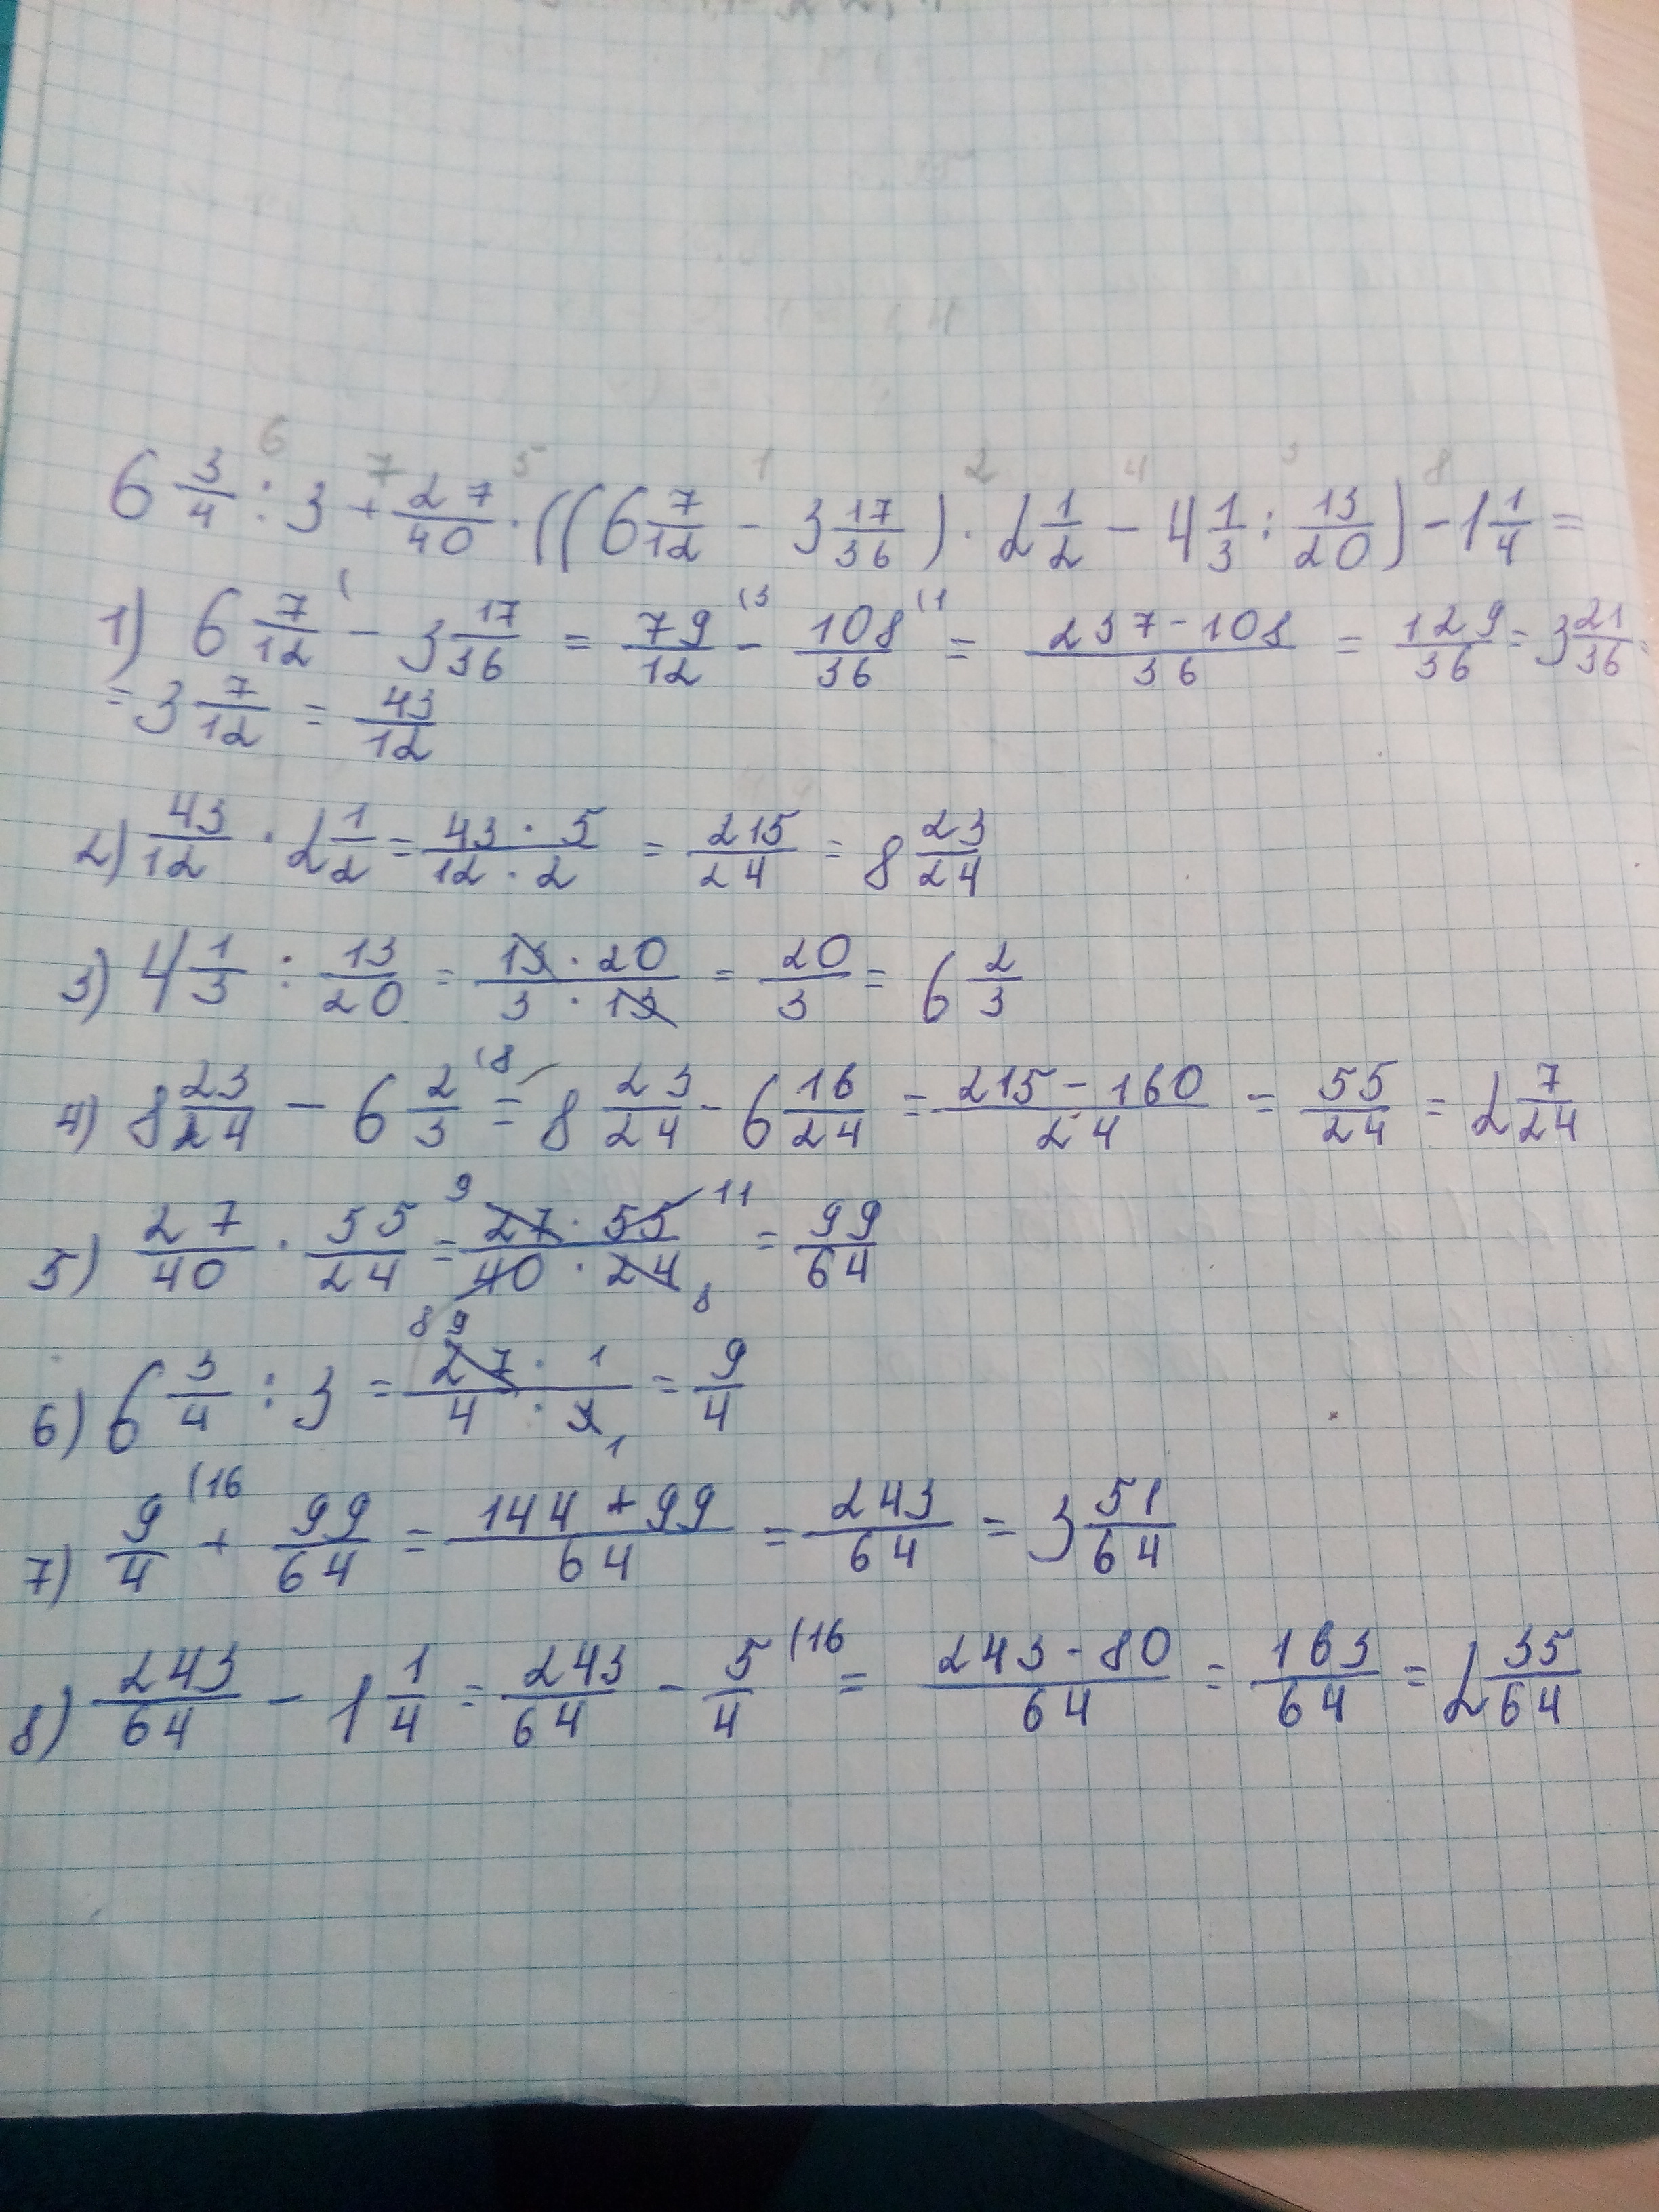 6 3/4 : 3 + 27/40 · ((6 7/12 - 3 17/36) · 2 1/2 - 4 1/3 : 13/20) - 1 1/4 =
1) 6 7/12 - 3 17/36 = 79/12 (3 - 108/36 (1 = 237-108/36 = 129/36 = 3 21/36 =
= 3 7/12 = 43/12
2) 43/12 · 2 1/2 = 43 · 5/12 · 2 = 215/24 = 8 23/24
3) 4 1/3 : 13/20 = 13 · 20/3 · 13 = 20/3 = 6 2/3
4) 8 23/24 - 6 2/3 (8 = 8 23/24 - 6 16/24 = 215 - 160/24 = 55/24 = 2 7/24
5) 27/40 · 55/24 = 9 27 · 55 11/8 40 · 24 8 = 99/64
6) 6 3/4 : 3 = 9 27 · 1/4 · 3 1 = 9/4
7) 9/4 (16 + 99/64 = 144 + 99/64 = 243/64 = 3 51/64
8) 243/64 - 1 1/4 = 243/64 - 5/4 (16 = 243 - 80/64 = 163/64 = 2 35/64